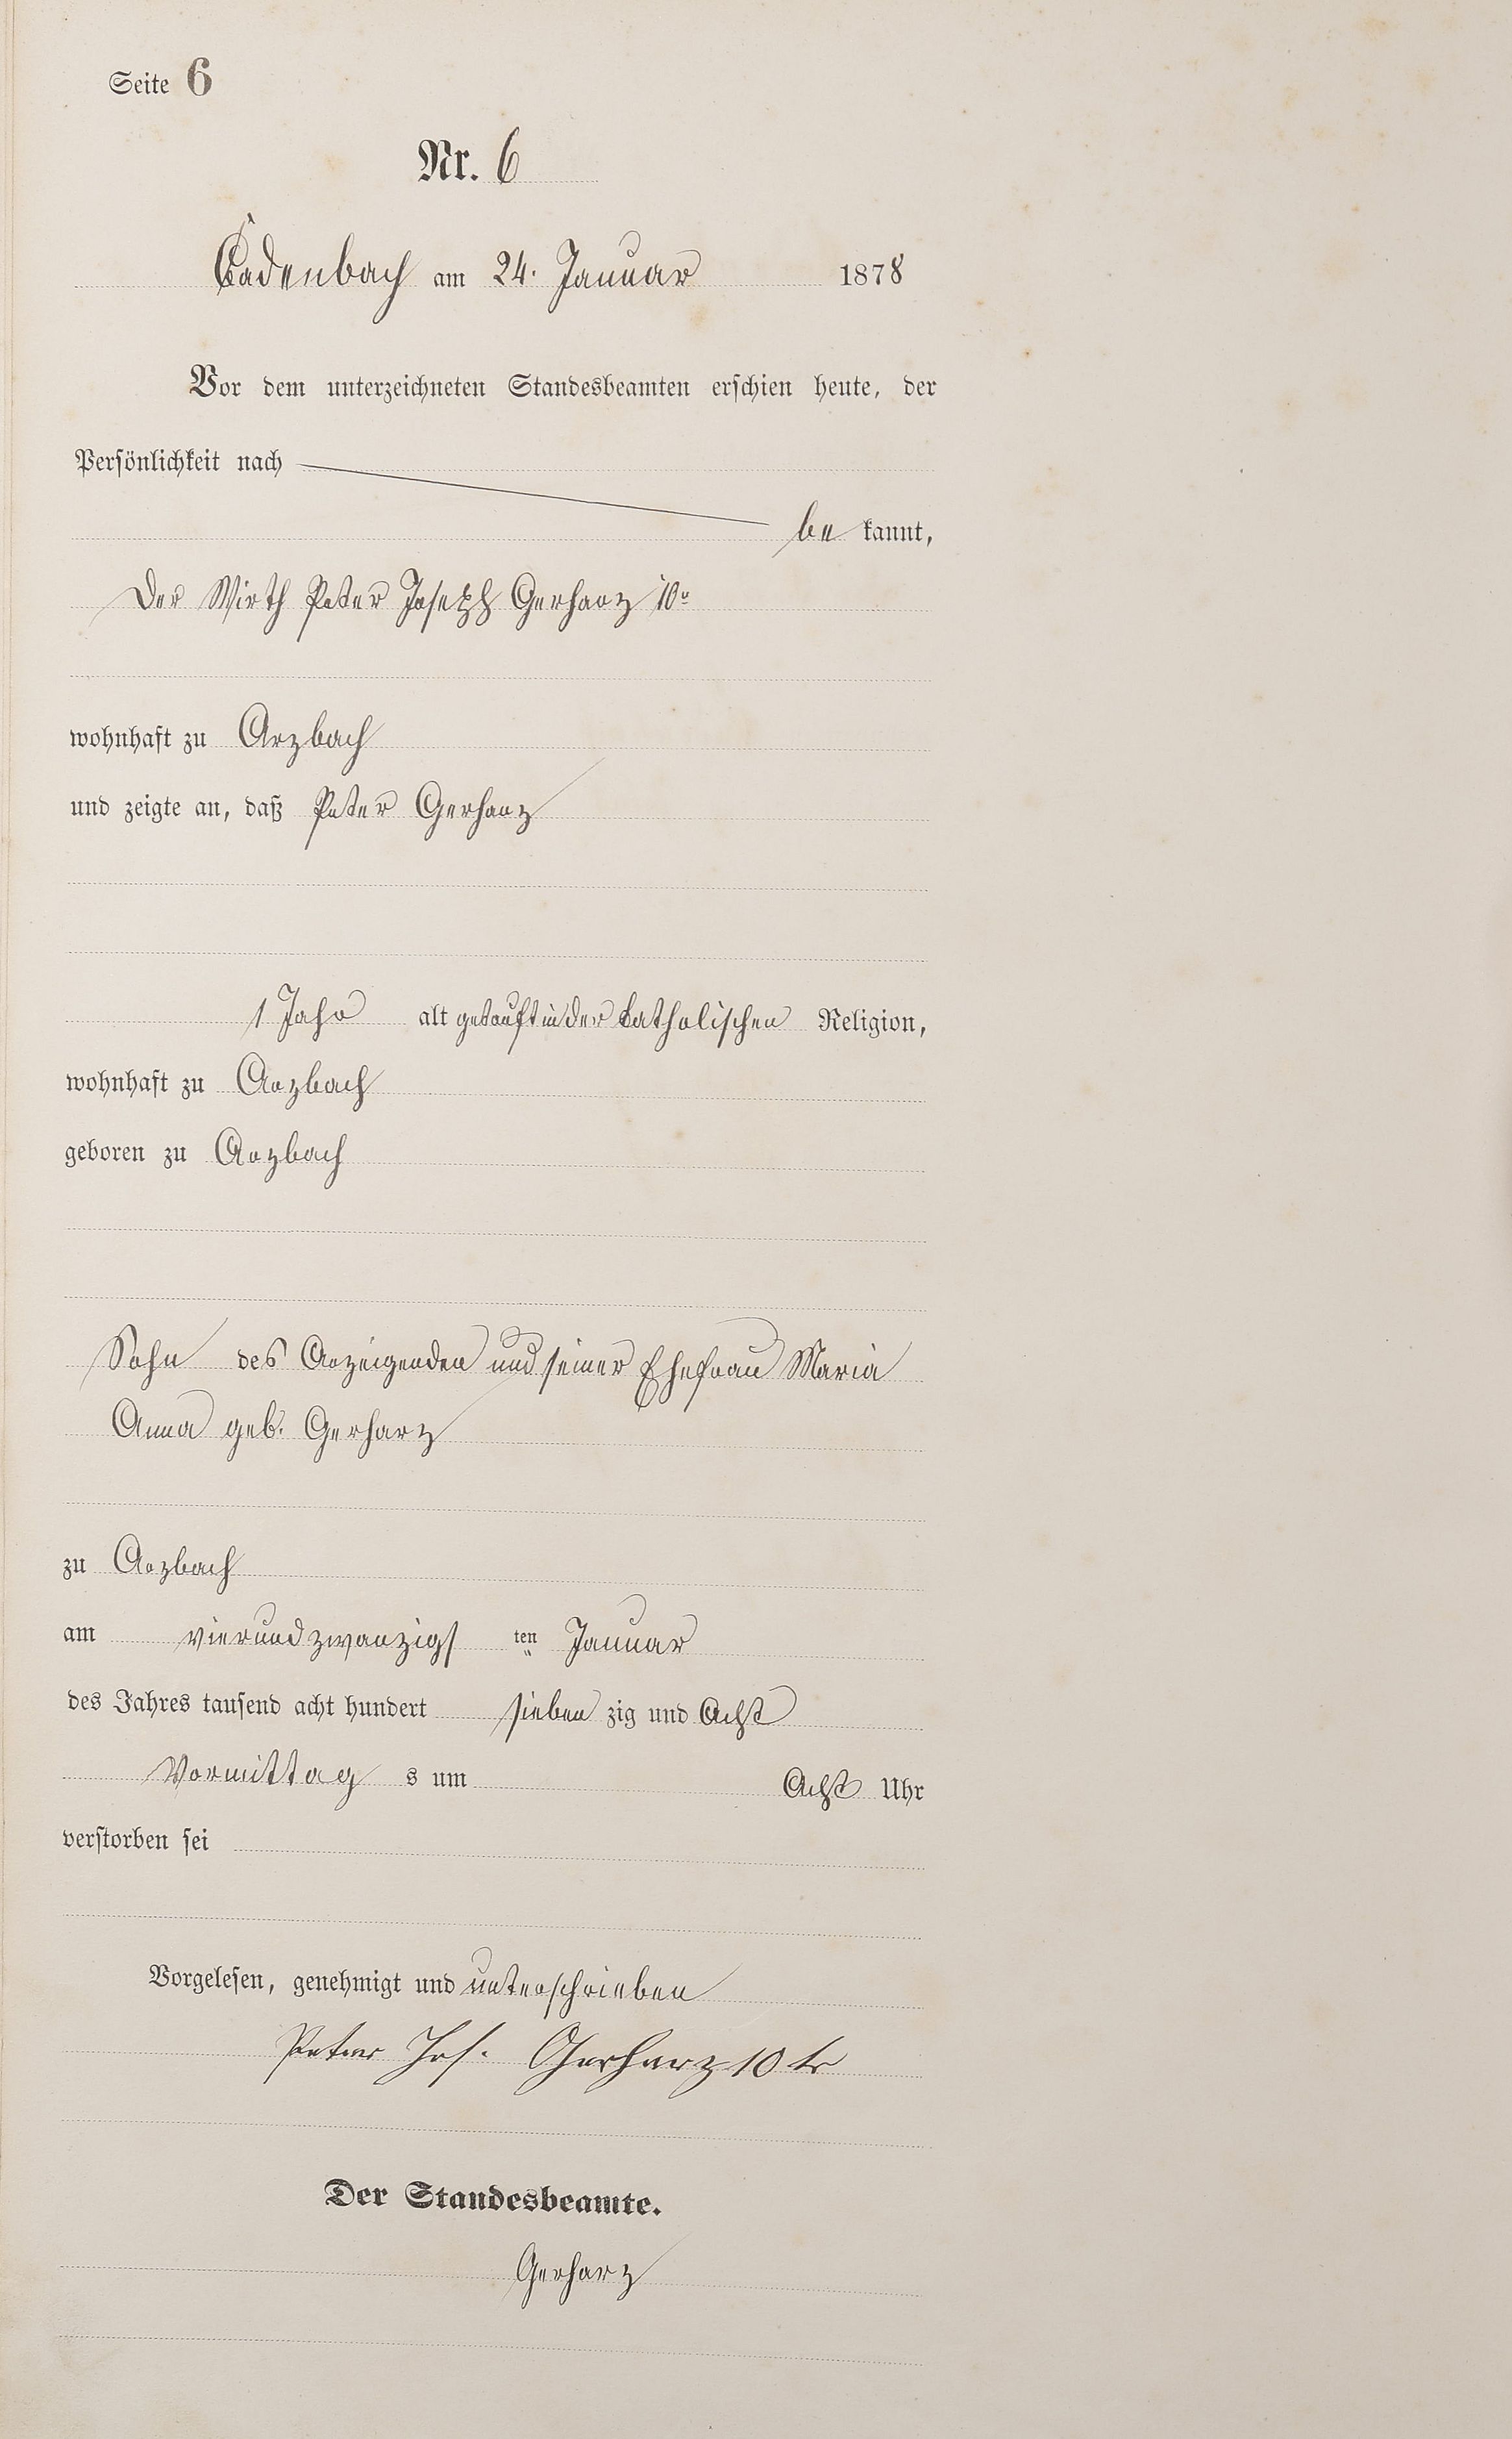 Seite 6
Nr. 6
Cadenbach am 24. Januar 1878
Vor dem unterzeichneten Standesbeamten erschien heute, der
Persönlichkeit nach
be kannt,
Der Wirth Peter Joseph Gerharz 10r
wohnhaft zu Arzbach
und zeigte an, daß Peter Gerharz
1 Jahr alt getauft in der katholischen Religion,
wohnhaft zu Arzbach
geboren zu Arzbach
Sohn des Anzeigenden und seiner Ehefrau Maria
Anna geb. Gerharz
zu Arzbach
am vierundzwanzigs ten Januar
des Jahres tausend acht hundert sieben zig und Acht
Vormittag s um Acht Uhr
verstorben sei
Vorgelesen, genehmigt und unterschrieben
Peter Jos. Gerharz 10 tr
Der Standesbeamte.
Gerharz